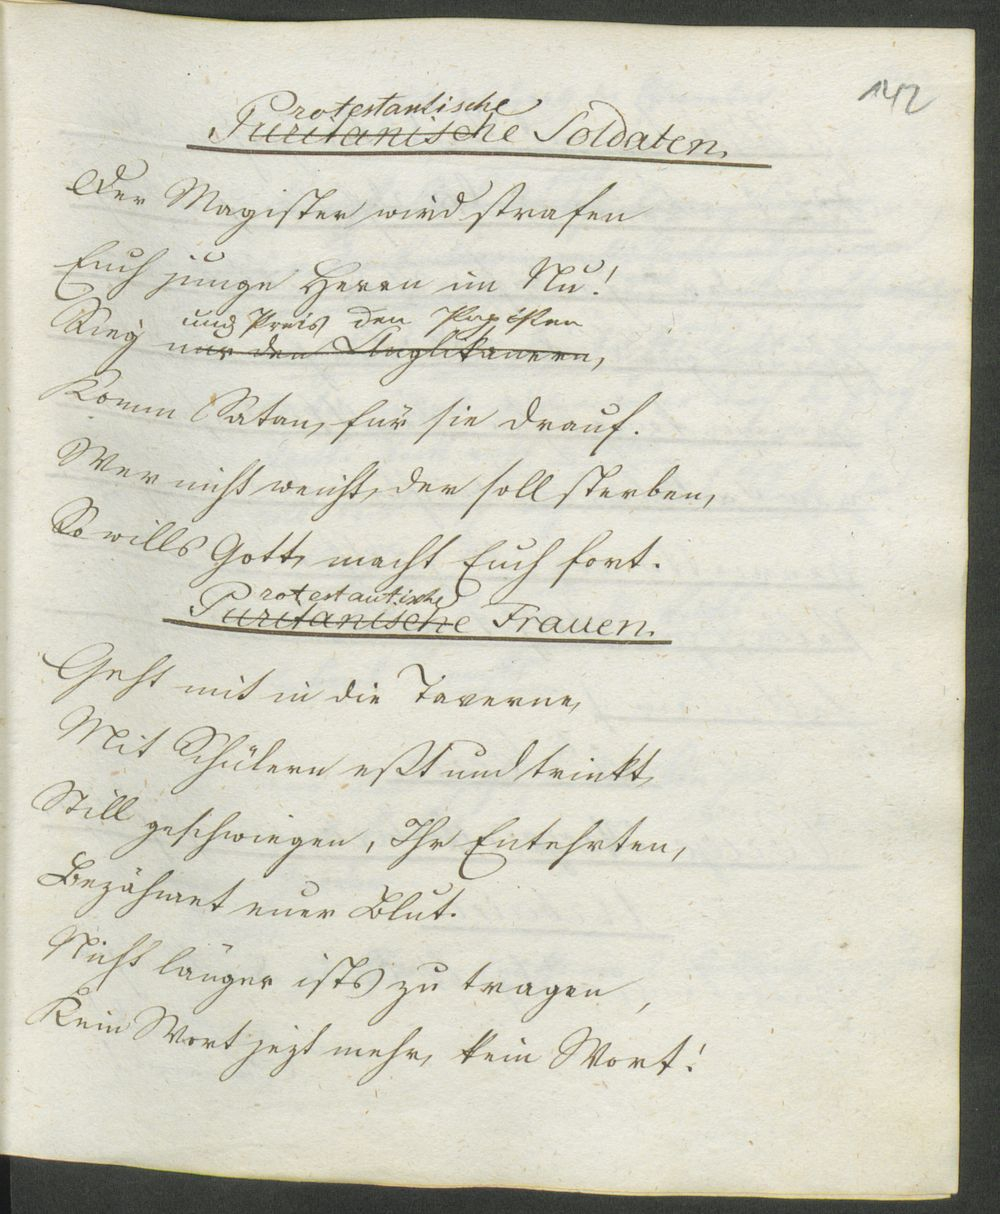 142
Protestantische
Puritanische Soldaten.
Der Magister wird strafen
Euch junge Herrn im Nu!
und Preis den Papisten
Sieg nur den Anglikanern,
Komm Satan, für sie drauf.
Wer nicht weicht, der soll sterben,
So wills Gott, macht Euch fort.
rotestantische
Puritanische Frauen.
Geht mit in die Taverne,
Mit Schülern eßt und trinkt,
Still geschwiegen, Ihr Entehrten,
Bezähmet euer Blut.
Nicht länger ists zu tragen,
Kein Wort jezt mehr, kein Wort!